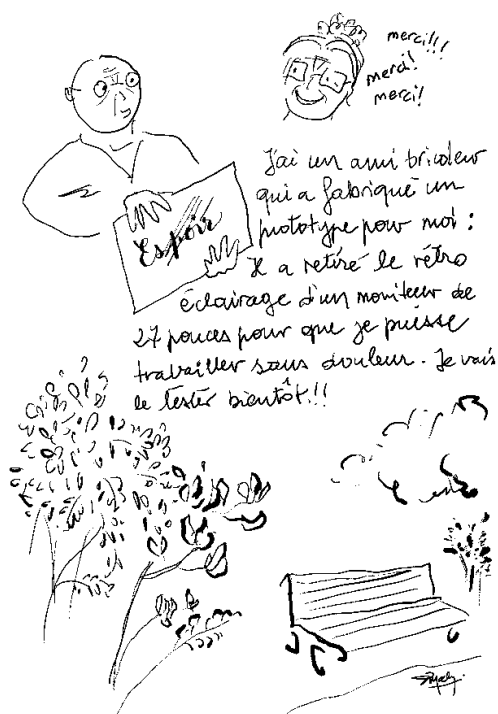 merci!!!
merci!
merci!
Espoir
J'ai un ami bricoleur
qui a fabriqué un
prototype pour moi :
Il a retiré le rétro
éclairage d'un moniteur de
27 pouces pour que je puisse
travailler sans douleur. Je vais
le tester bientôt!!